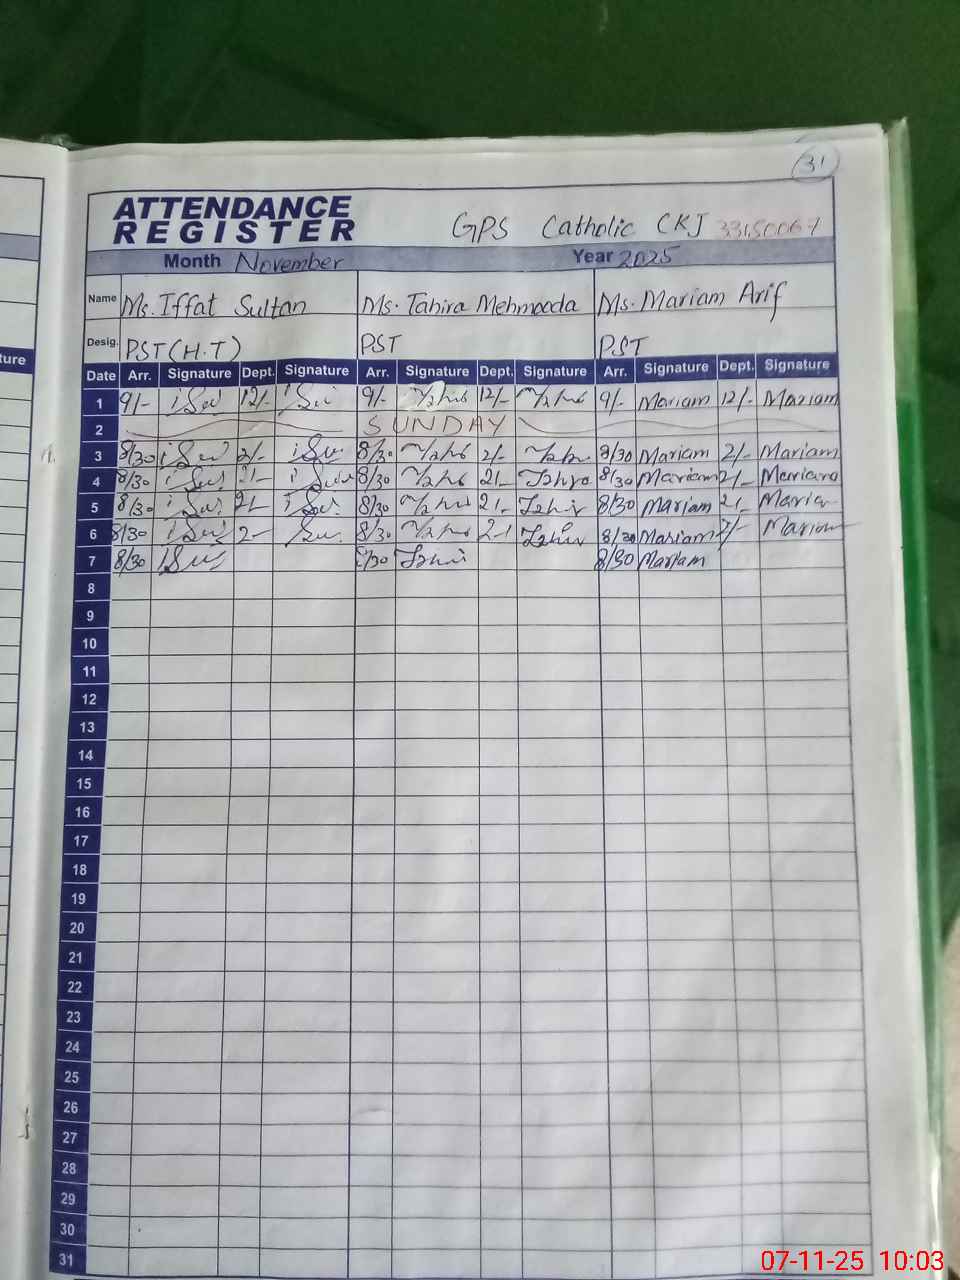 31
ATTENDANCE
REGISTER GPS Catholic CKJ 33150067
Month November Year 2025
Name Ms. Iffat Sultan Ms. Tahira Mehmooda Ms. Mariam Arif
Desig. PST (H.T) PST PST
ture
Date Arr. Signature Dept. Signature Arr. Signature Dept. Signature Arr. Signature Dept. Signature
1 9/- 12/- 9/- 12/- 9/- Mariam 12/- Mariam
2 SUNDAY
3 8/30 2/- 8/30 2/- 8/30 Mariam 2/- Mariam
4 8/30 2/- 8/30 2/- 8/30 Mariam 2/- Mariam
5 8/30 2/- 8/30 2/- 8/30 Mariam 2/- Mariam
6 8/30 2- 8/30 2-/ 8/30 Mariam 2/- Mariam
7 8/30 8/30 8/30 Mariam
8
9
10
11
12
13
14
15
16
17
18
19
20
21
22
23
24
25
26
27
28
29
30
31
07-11-25 10:03